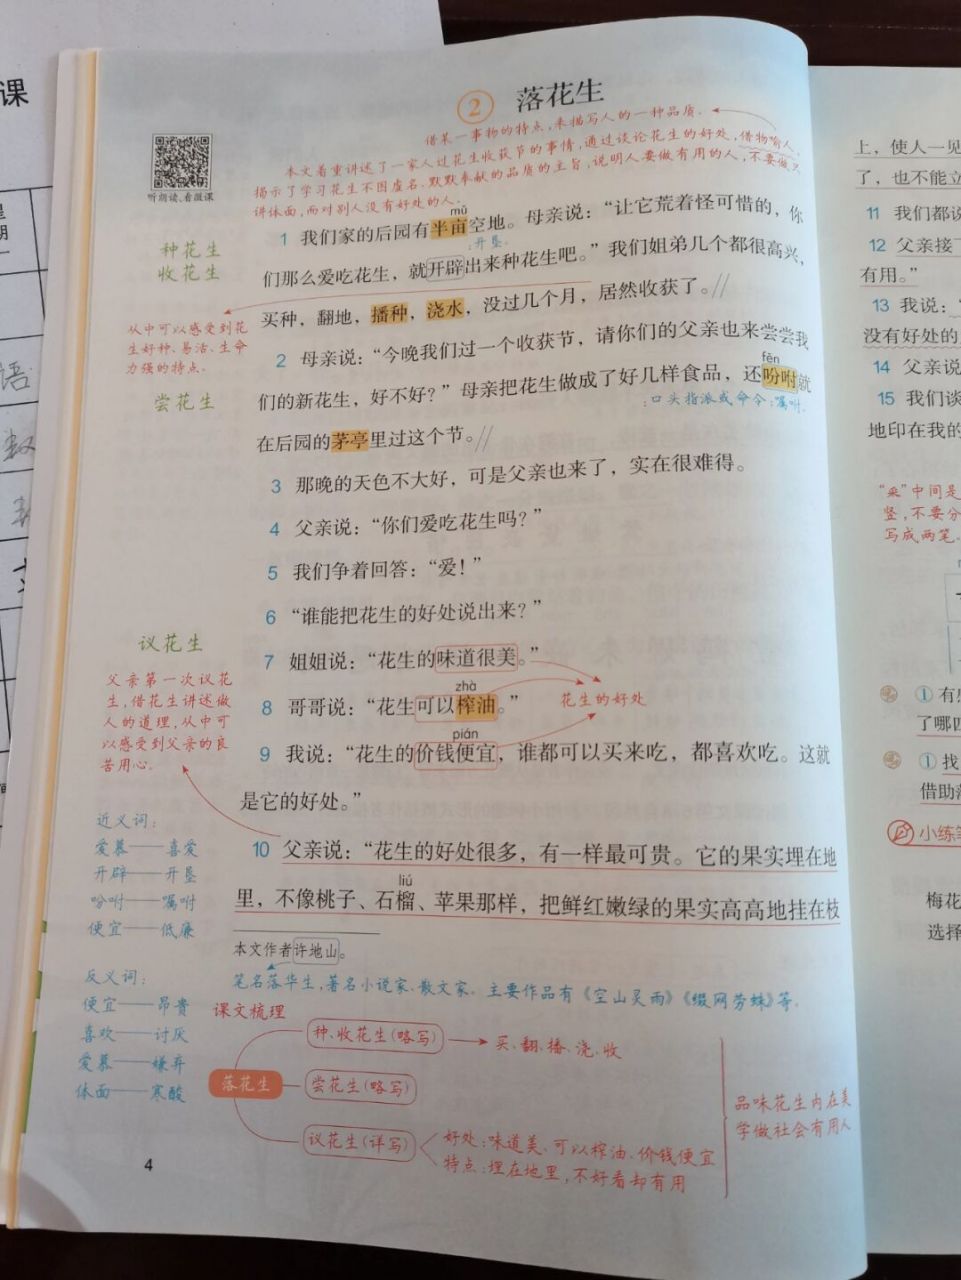 课
2 落花生
借某一事物的特点,来描写人的一种品质。
本文着重讲述了一家人过花生收获节的事情,通过谈论花生的好处,借物喻人,
揭示了学习花生不图虚名、默默奉献的品质的主旨,说明人要做有用的人,不要做只
讲体面,而对别人没有好处的人。
听朗读、看微课
mǔ
1 我们家的后园有半亩空地。母亲说:“让它荒着怪可惜的,你
:开垦。
们那么爱吃花生,就开辟出来种花生吧。”我们姐弟几个都很高兴,
买种,翻地,播种,浇水,没过几个月,居然收获了。//
种花生
收花生
从中可以感受到花
生好种、易活、生命
力强的特点。
2 母亲说:“今晚我们过一个收获节,请你们的父亲也来尝尝我
fēn
们的新花生,好不好?”母亲把花生做成了好几样食品,还吩咐就
:口头指派或命令;嘱咐。
在后园的茅亭里过这个节。//
尝花生
3 那晚的天色不大好,可是父亲也来了,实在很难得。
4 父亲说:“你们爱吃花生吗?”
5 我们争着回答:“爱!”
6 “谁能把花生的好处说出来?”
7 姐姐说:“花生的味道很美。”
zhà
8 哥哥说:“花生可以榨油。”
花生的好处
pián
9 我说:“花生的价钱便宜,谁都可以买来吃,都喜欢吃。这就
是它的好处。”
议花生
父亲第一次议花
生,借花生讲述做
人的道理,从中可
以感受到父亲的良
苦用心。
10 父亲说:“花生的好处很多,有一样最可贵。它的果实埋在地
liú
里,不像桃子、石榴、苹果那样,把鲜红嫩绿的果实高高地挂在枝
近义词:
爱慕——喜爱
开辟——开垦
吩咐——嘱咐
便宜——低廉
反义词:
便宜——昂贵
喜欢——讨厌
爱慕——嫌弃
体面——寒酸
本文作者许地山。
笔名落华生,著名小说家、散文家。主要作品有《空山灵雨》《缀网劳蛛》等。
课文梳理
落花生
种、收花生(略写)
买、翻、播、浇、收
尝花生(略写)
议花生(详写)
好处:味道美、可以榨油、价钱便宜
特点:埋在地里,不好看却有用
品味花生内在美
学做社会有用人
4
上,使人一见
了,也不能立
11 我们都说
12 父亲接
有用。”
13 我说:“
没有好处的
14 父亲说
15 我们谈
地印在我的
“采”中间是
竖,不要分
写成两笔。
① 有
了哪四
① 找
借助
小练笔
梅花
选择